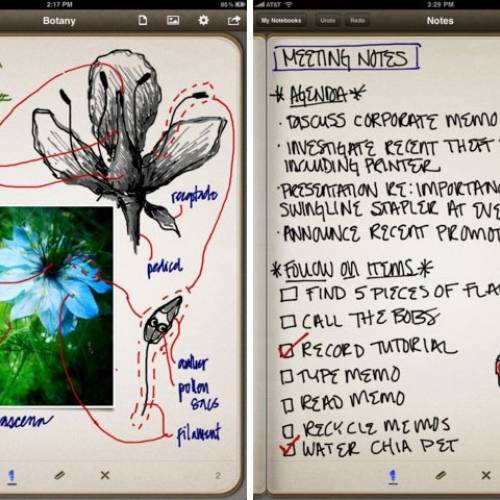 2:17 PM
86%
Botany
receptacle
pedical
anther
pollen
sacs
filament
2
AT&T
3:29 PM
My Notebooks
Undo
Redo
Notes
MEETING NOTES
* AGENDA *
· DISCUSS CORPORATE MEMO
· INVESTIGATE RECENT THEFT
INCLUDING PRINTER
· PRESENTATION RE: IMPORTANC
SWINGLINE STAPLER AT EVE
· ANNOUNCE RECENT PROMOT
* FOLLOW ON ITEMS *
FIND 5 PIECES OF FLA
CALL THE BOBS
RECORD TUTORIAL
TYPE MEMO
READ MEMO
RECYCLE MEMOS
WATER CHIA PET